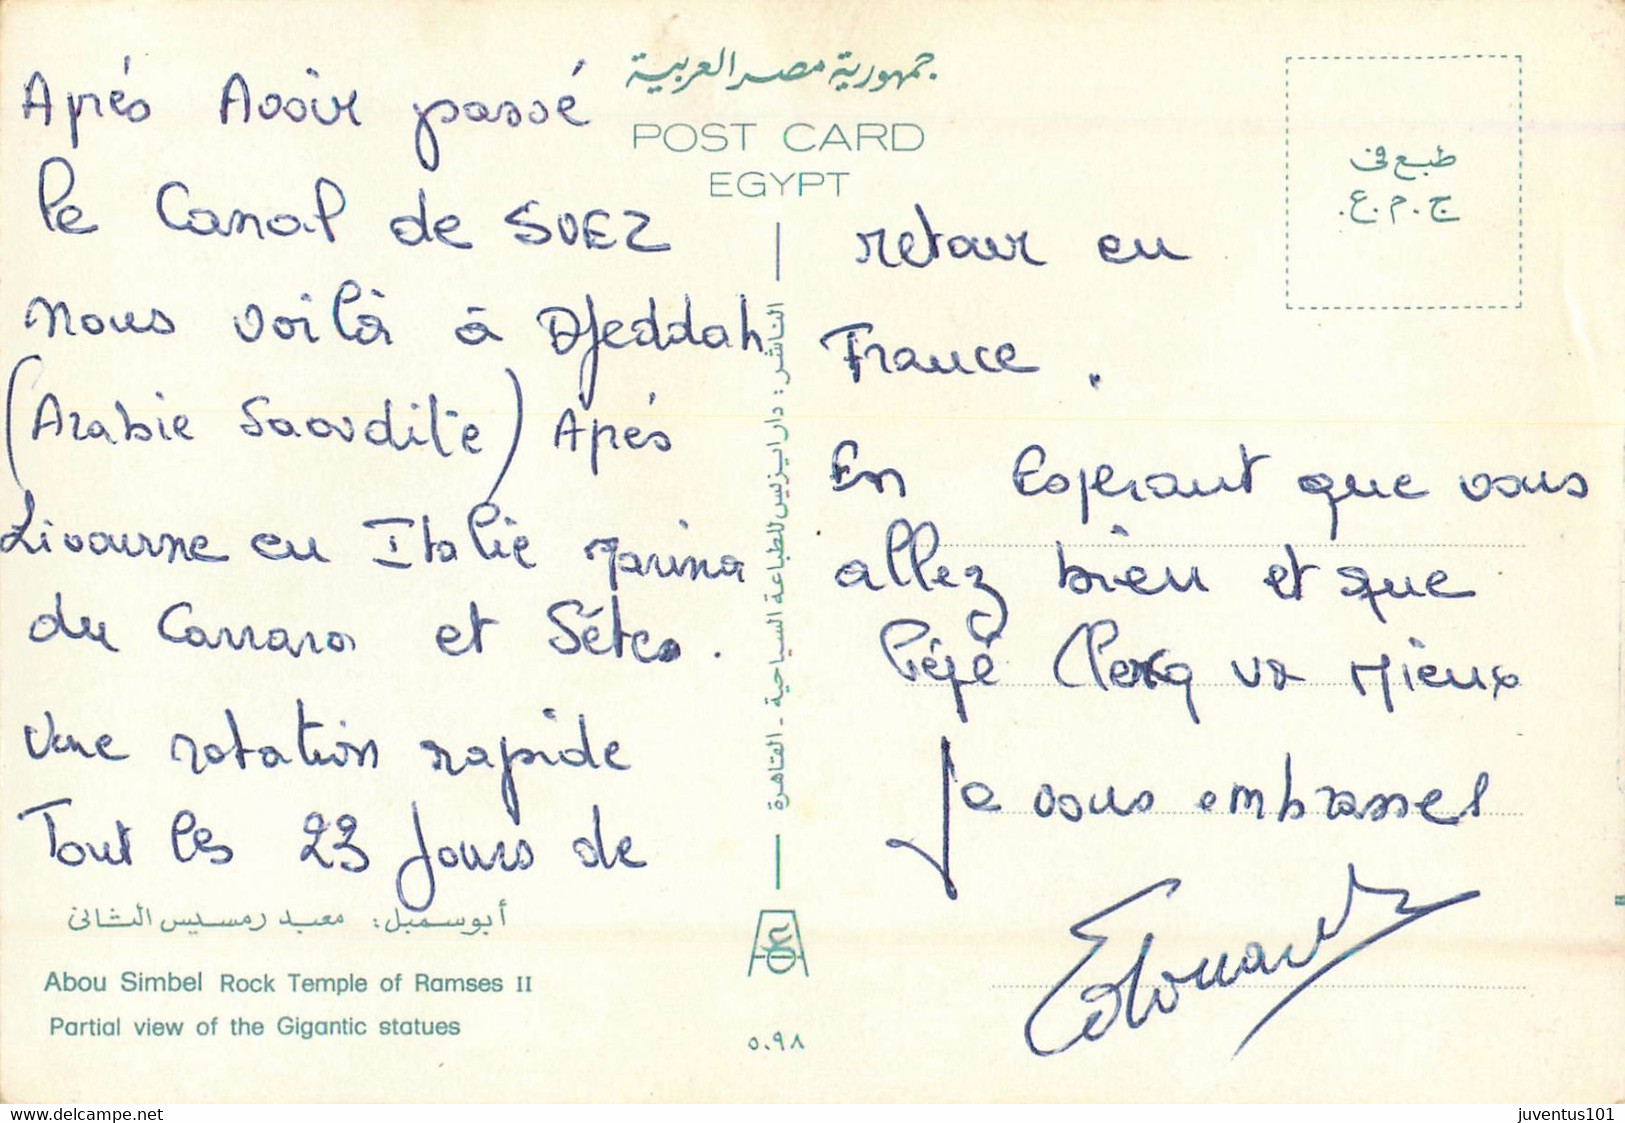 جمهورية مصر العربية
POST CARD
EGYPT
طبع في
ج.م.ع.
Aprés Avoir passé
le Canal de SUEZ
nous voilà à Djeddah
(Arabie Saoudite) Aprés
Livourne en Italie Marina
du Carrara et Sétes.
Une rotation rapide
Tout les 23 Jours de
retour en
France.
En Esperant que vous
allez bien et que
Pépé Clercq va Mieux
Je vous embrasses
Edouard
الناشر: دار ايزيس للطباعة السياحية - القاهرة
أبوسمبل: معبد رمسيس الثانى
Abou Simbel Rock Temple of Ramses II
Partial view of the Gigantic statues
٥٠٩٨
www.delcampe.net
juventus101